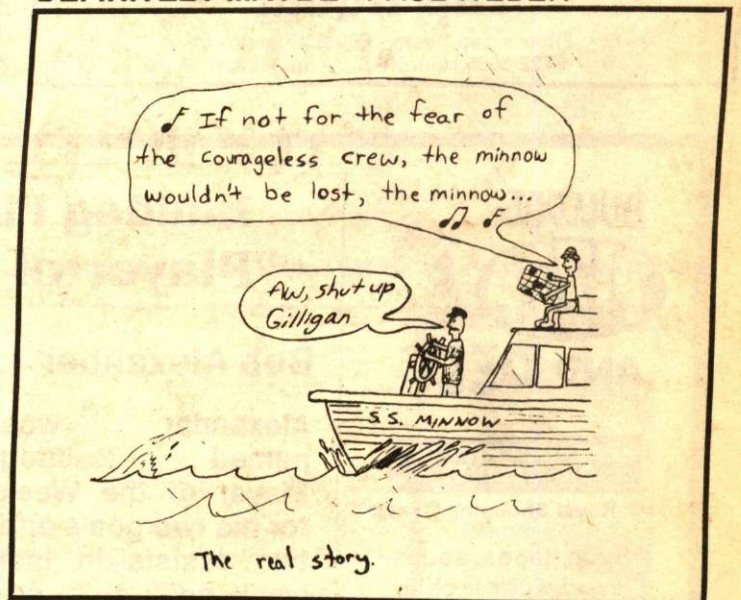 ♪ If not for the fear of
the courageless crew, the minnow
wouldn't be lost, the minnow...
♫ ♪
Aw, shut up
Gilligan
S.S. MINNOW
The real story.